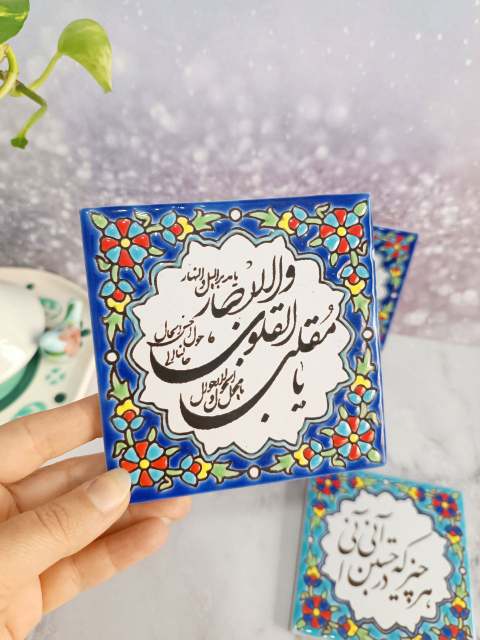 یا مقلب القلوب والابصار
یا مدبر اللیل والنهار
یا محول الحول والاحوال
حول حالنا الی احسن الحال
هر چیز که در جستن آنی آنی